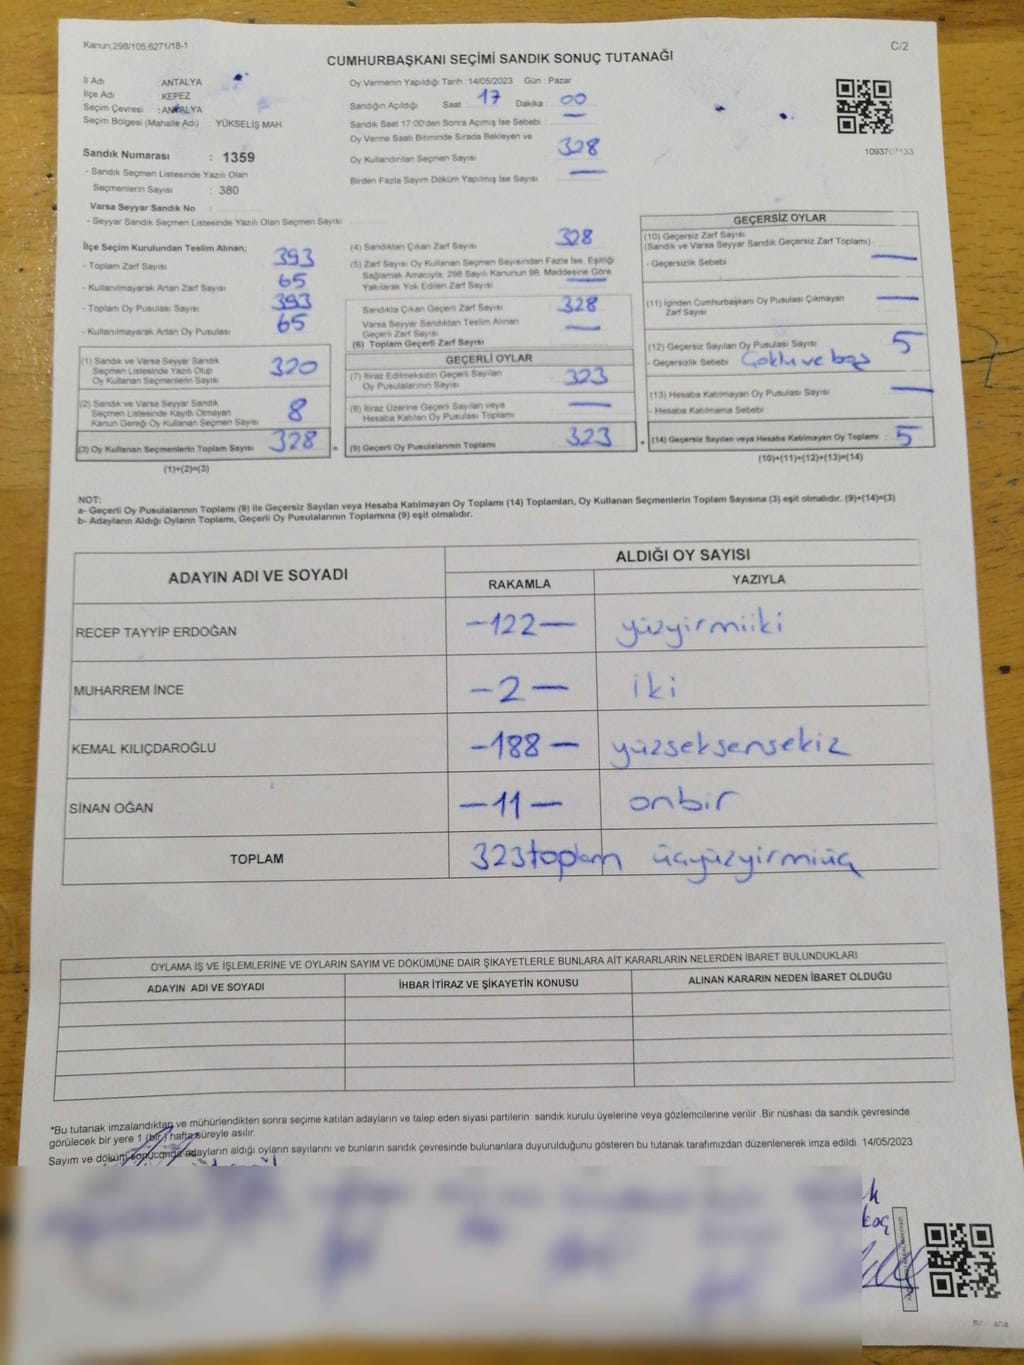 Kanun:298/105,6271/18-1
C/2
CUMHURBAŞKANI SEÇİMİ SANDIK SONUÇ TUTANAĞI
İl Adı ANTALYA
İlçe Adı KEPEZ
Seçim Çevresi : ANTALYA
Seçim Bölgesi (Mahalle Adı) YÜKSELİŞ MAH.
Sandık Numarası : 1359
- Sandık Seçmen Listesinde Yazılı Olan
Seçmenlerin Sayısı : 380
Varsa Seyyar Sandık No
- Seyyar Sandık Seçmen Listesinde Yazılı Olan Seçmen Sayısı
Oy Vermenin Yapıldığı Tarih :14/05/2023 Gün : Pazar
Sandığın Açıldığı Saat 17 Dakika 00
Sandık Saat 17:00'den Sonra Açımış İse Sebebi —
Oy Verme Saati Bitiminde Sırada Bekleyen ve
Oy Kullandırılan Seçmen Sayısı 328
Birden Fazla Sayım Döküm Yapılmış İse Sayısı —
1093707133
İlçe Seçim Kurulundan Teslim Alınan;
- Toplam Zarf Sayısı 393
- Kullanılmayarak Artan Zarf Sayısı 65
- Toplam Oy Pusulası 393
- Kullanılmayarak Artan Oy Pusulası 65
(1) Sandık ve Varsa Seyyar Sandık
Seçmen Listesinde Yazılı Olup
Oy Kullanan Seçmenlerin Sayısı 320
(2) Sandık ve Varsa Seyyar Sandık
Seçmen Listesinde Kayıtlı Olmayan
Kanun Gereği Oy Kullanan Seçmen Sayısı 8
(3) Oy Kullanan Seçmenlerin Toplam Sayısı 328
(1)+(2)=(3)
(4) Sandıktan Çıkan Zarf Sayısı 328
(5) Zarf Sayısı Oy Kullanan Seçmen Sayısından Fazla İse, Eşitliği
Sağlamak Amacıyla, 298 Sayılı Kanunun 98. Maddesine Göre
Yakılarak Yok Edilen Zarf Sayısı —
Sandıkta Çıkan Geçerli Zarf Sayısı 328
Varsa Seyyar Sandıktan Teslim Alınan
Geçerli Zarf Sayısı —
(6) Toplam Geçerli Zarf Sayısı
GEÇERLİ OYLAR
(7) İtiraz Edilmeksizin Geçerli Sayılan
Oy Pusulalarının Sayısı 323
(8) İtiraz Üzerine Geçerli Sayılan veya
Hesaba Katılan Oy Pusulası Toplamı —
(9) Geçerli Oy Pusulalarının Toplamı 323
GEÇERSİZ OYLAR
(10) Geçersiz Zarf Sayısı
(Sandık ve Varsa Seyyar Sandık Geçersiz Zarf Toplamı)
- Geçersizlik Sebebi —
(11) İçinden Cumhurbaşkanı Oy Pusulası Çıkmayan
Zarf Sayısı —
(12) Geçersiz Sayılan Oy Pusulası Sayısı 5
- Geçersizlik Sebebi Çoklu ve boş
(13) Hesaba Katılmayan Oy Pusulası Sayısı —
- Hesaba Katılmama Sebebi
(14) Geçersiz Sayılan veya Hesaba Katılmayan Oy Toplamı 5
(10)+(11)+(12)+(13)=(14)
NOT:
a- Geçerli Oy Pusulalarının Toplamı (9) ile Geçersiz Sayılan veya Hesaba Katılmayan Oy Toplamı (14) Toplamları, Oy Kullanan Seçmenlerin Toplam Sayısına (3) eşit olmalıdır. (9)+(14)=(3)
b- Adayların Aldığı Oyların Toplamı, Geçerli Oy Pusulalarının Toplamına (9) eşit olmalıdır.
ADAYIN ADI VE SOYADI
ALDIĞI OY SAYISI
RAKAMLA YAZIYLA
RECEP TAYYİP ERDOĞAN -122— yüzyirmiiki
MUHARREM İNCE -2— iki
KEMAL KILIÇDAROĞLU -188— yüzseksensekiz
SİNAN OĞAN —11— onbir
TOPLAM 323toplam üçyüzyirmiüç
OYLAMA İŞ VE İŞLEMLERİNE VE OYLARIN SAYIM VE DÖKÜMÜNE DAİR ŞİKAYETLERLE BUNLARA AİT KARARLARIN NELERDEN İBARET BULUNDUKLARI
ADAYIN ADI VE SOYADI İHBAR İTİRAZ VE ŞİKAYETİN KONUSU ALINAN KARARIN NEDEN İBARET OLDUĞU
*Bu tutanak imzalandıktan ve mühürlendikten sonra seçime katılan adayların ve talep eden siyasi partilerin sandık kurulu üyelerine veya gözlemcilerine verilir .Bir nüshası da sandık çevresinde
görülecek bir yere 1 (bir) hafta süreyle asılır.
Sayım ve döküm sonucunda adayların aldığı oyların sayılarını ve bunların sandık çevresinde bulunanlara duyurulduğunu gösteren bu tutanak tarafımızdan düzenlenerek imza edildi. 14/05/2023